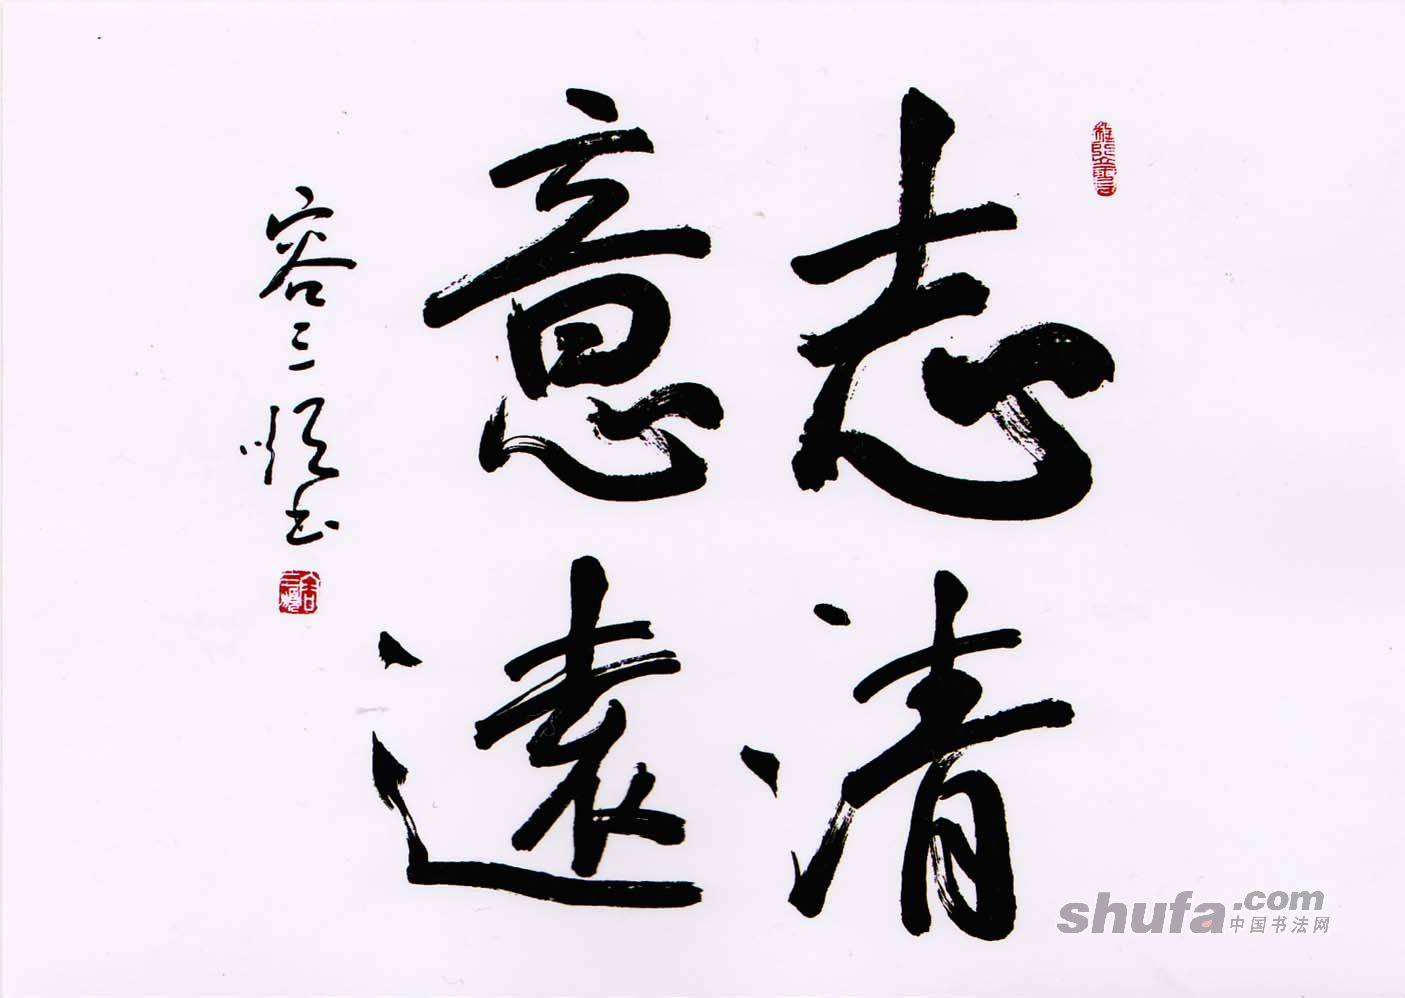 志清
意遠
容三順书
shufa.com
中国书法网